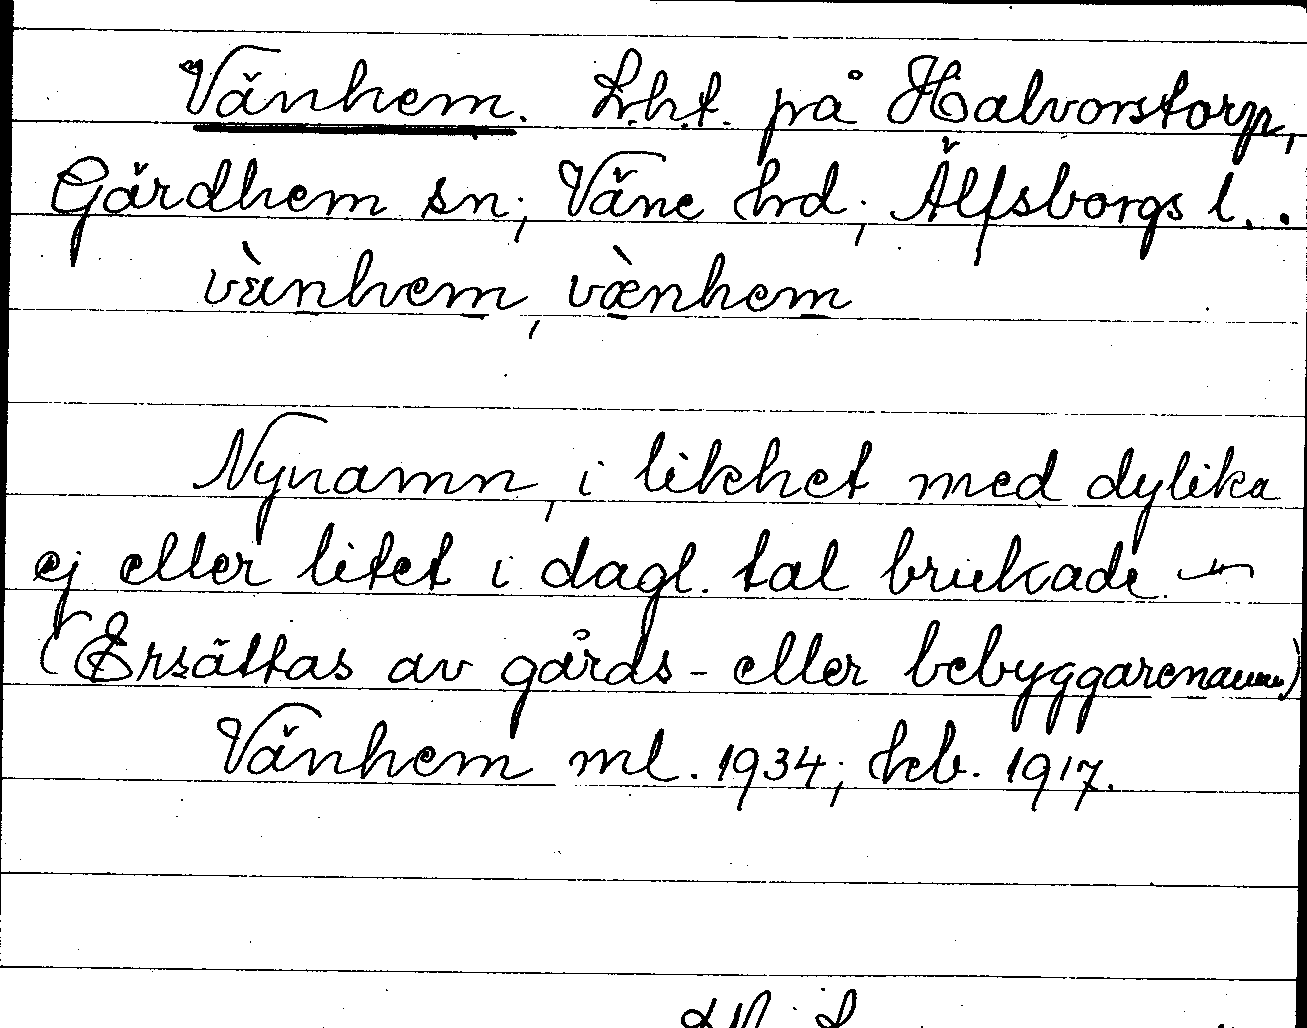 Vänhem. Lht. på Halvorstorp,
Gärdhem sn, Väne hrd, Älfsborgs l..
vὲnhem, væ̀nhem
Nynamn, i likhet med dylika
ej eller litet i dagl. tal brukade. —
(Ersättas av gårds- eller bebyggarenamn)
Vänhem ml. 1934; kb. 1917.